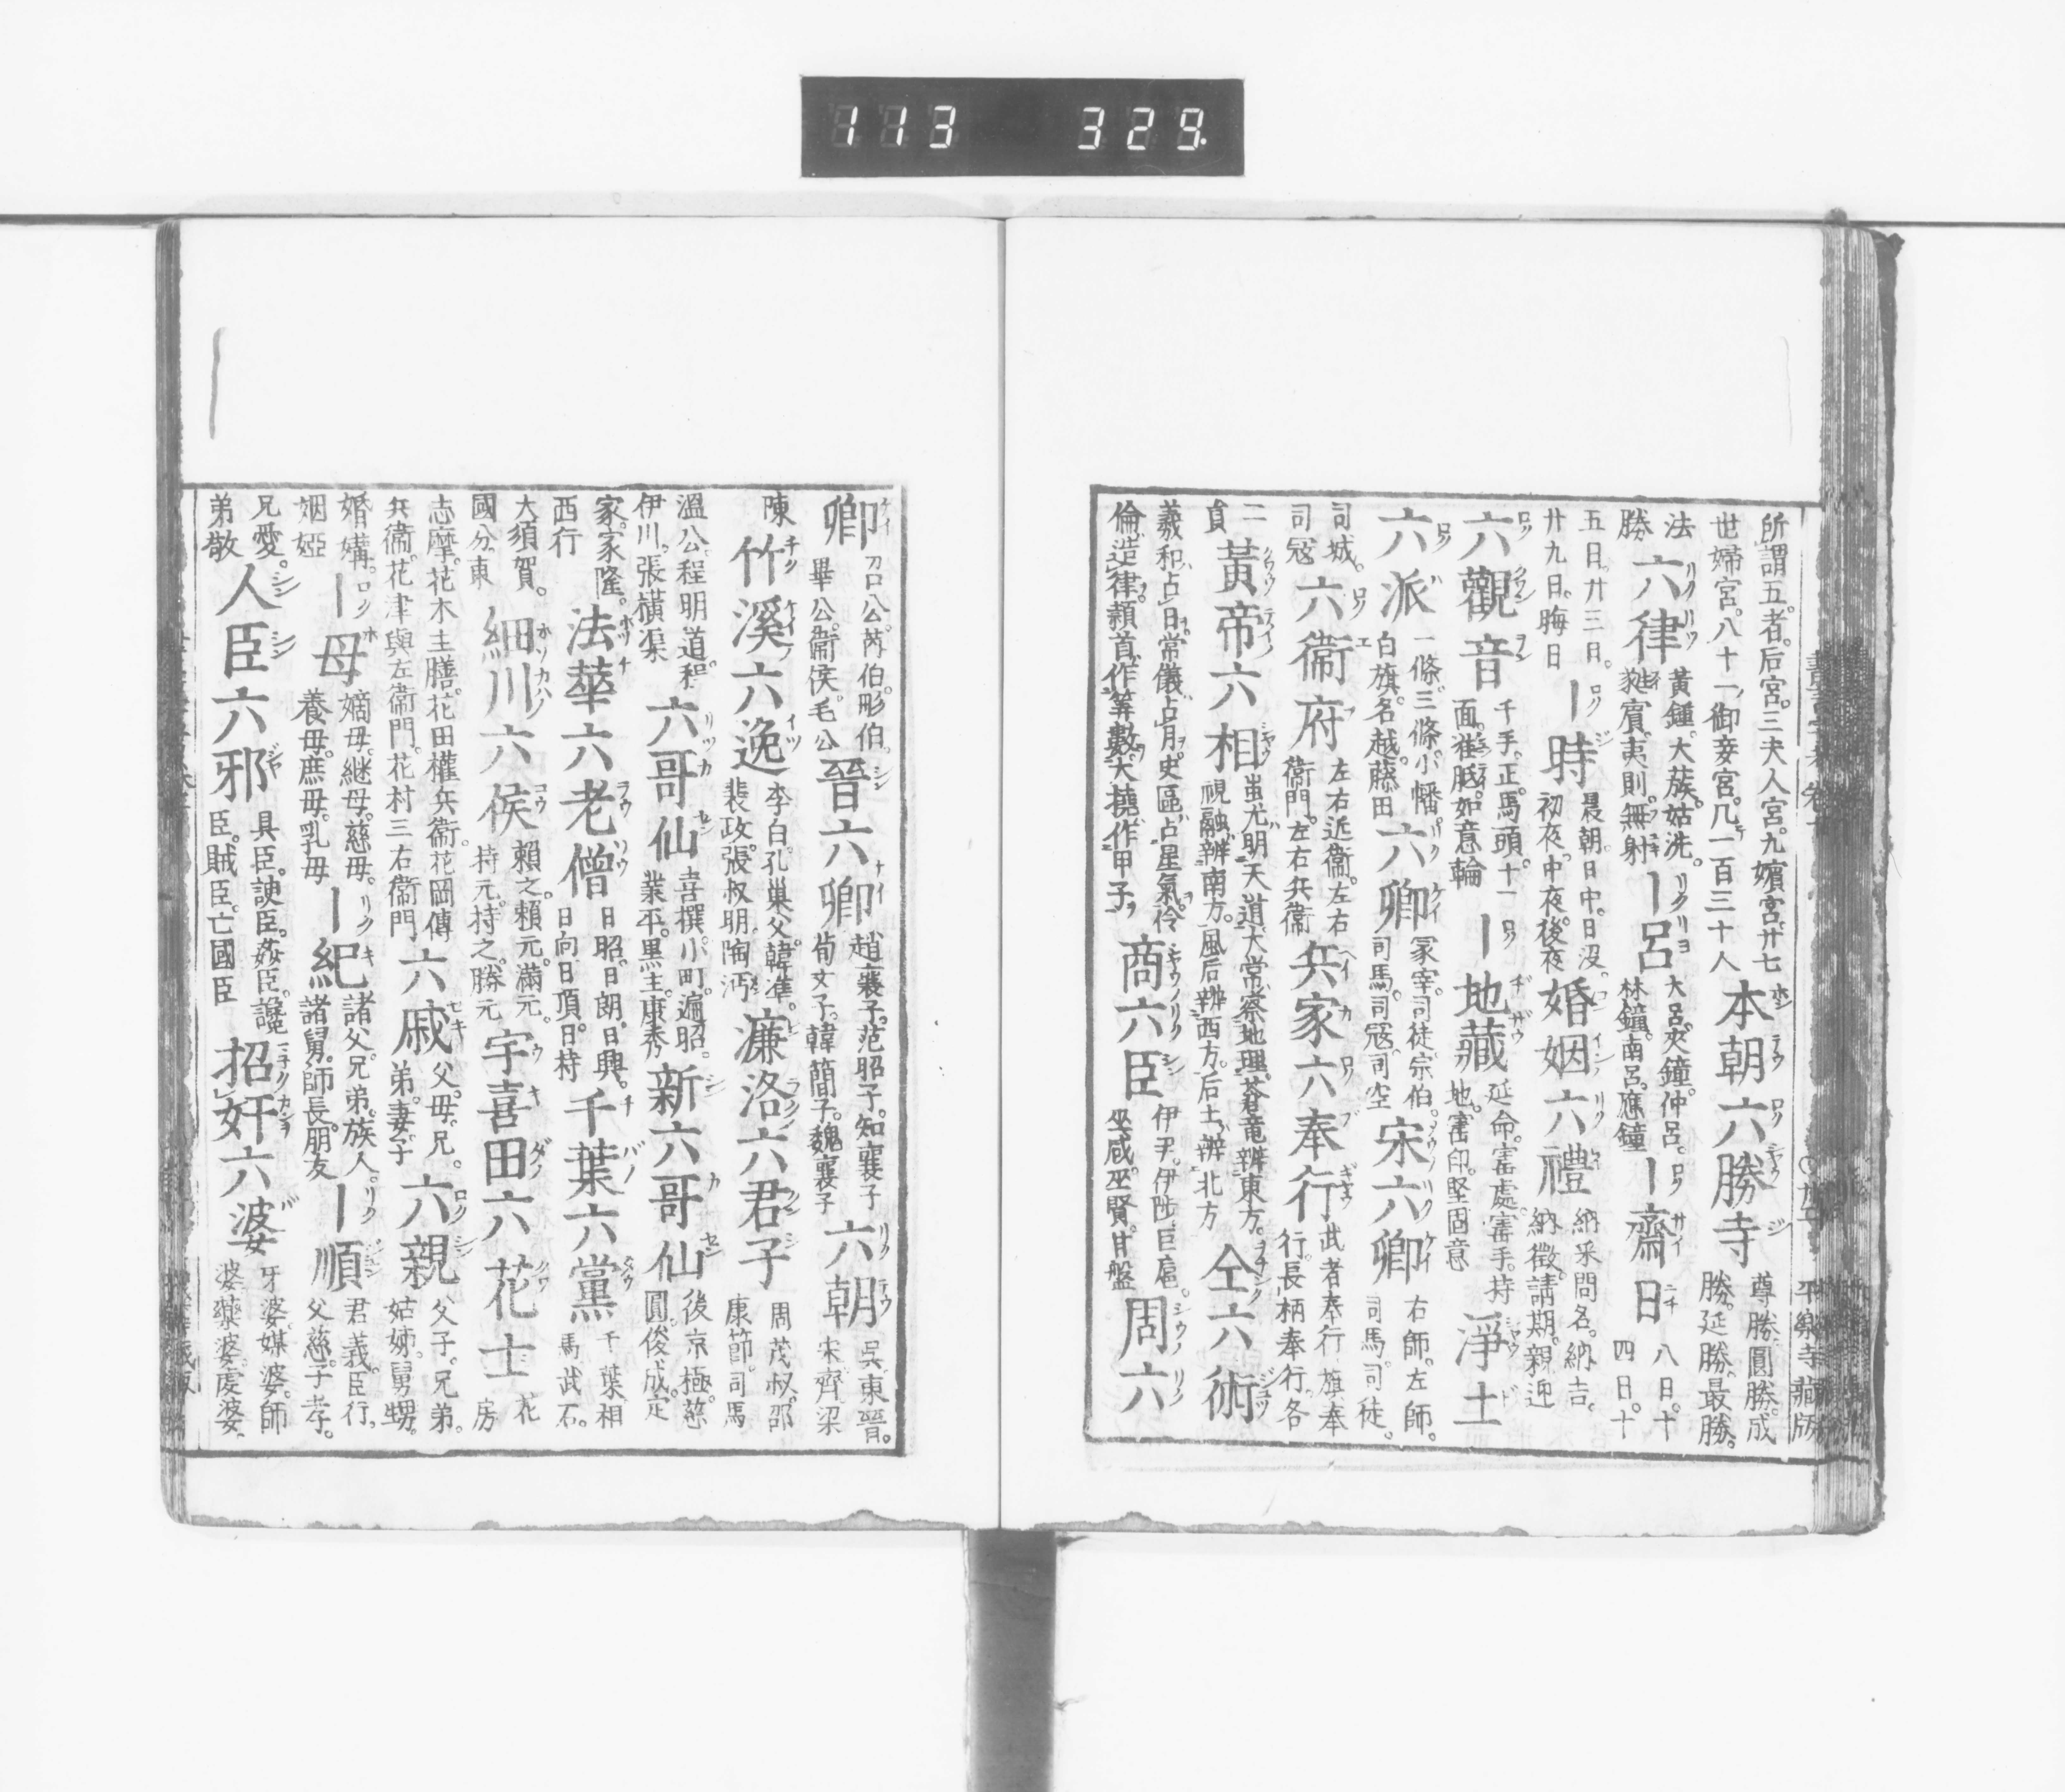 113 329.
所謂五者。后宮。三夫人宮。九嬪宮。廿七
世婦宮。八十一御妾宮。几一百三十人
本朝六勝寺
尊勝。圓勝。成
勝。延勝。最勝。
法
勝
六律
黃鍾。大蔟。姑洗。
蕤賓。夷則。無射
｜呂
大呂。夾鐘。仲呂。
林鐘。南呂。應鐘
｜齋日
八日。十
四日。十
五日。廿三日。
廿九日。晦日
｜時
晨朝。日中。日沒。
初夜。中夜。後夜
婚姻六禮
納采問名。納吉。
納徵。請期。親迎
六觀音
千手。正。馬頭。十一
面。准胝。如意輪
｜地藏
延命。寚處。寚手。持
地。寚印。堅固意
淨土
六派
一條。三條。小幡。
白旗。名越。藤田
六卿
冢宰。司徒。宗伯。
司馬。司寇。司空
宋六卿
右師。左師。
司馬。司徒。
司城。
司寇
六衞府
左右近衞。左右
衞門。左右兵衞
兵家六奉行
武者奉行 旗奉
行。長柄奉行。各
二
貞
黃帝六相
蚩尤明天道。大常察地理。蒼竜辨東方。
視融辨南方。風后辨西方。后土辨北方
仝六術
羲和占日。常儀占月。史區占星氣。伶
倫造律。頴首作筭數。大撓作甲子
商六臣
伊尹。伊陟。巨扈。
巫咸。巫賢。甘盤
周六
卿
召公。芮伯。彤伯。
畢公。衞侯。毛公
晉六卿
趙襄子。范昭子。知襄子
荀文子。韓簡子。魏襄子
六朝
吳。東晉。
宋齊梁
陳
竹溪六逸
李白。孔巢父。韓準。
裴政。張叔明。陶沔
濂洛六君子
周茂叔。邵
康節。司馬
溫公。程明道。程
伊川。張橫渠
六哥仙
喜撰。小町。遍昭。
業平。黒主。康秀
新六哥仙
後京極。慈
圓。俊成。定
家。家隆。
西行
法華六老僧
日昭。日朗。日興。
日向。日頂。日持
千葉六黨
千葉相
馬武石。
大須賀。
國分。東
細川六侯
賴之。賴元。滿元。
持元。持之。勝元
宇喜田六花士
花
房
志摩。花木主膳。花田權兵衞。花岡傳
兵衞。花津與左衞門。花村三右衞門
六戚
父。母。兄。
弟。妻。子
六親
父子。兄弟。
姑姉。舅甥。
婚媾。
姻婭
｜母
嫡母。継母。慈母。
養母。庶母。乳母
｜紀
諸父。兄弟。族人。
諸舅。師長。朋友
｜順
君義。臣行。
父慈。子孝。
兄愛。
弟敬
人臣六邪
具臣。諛臣。姦臣。讒
臣。賊臣。亡國臣
招奸六婆
牙婆。媒婆。師
婆。藥婆。虔婆。
平樂寺藏版